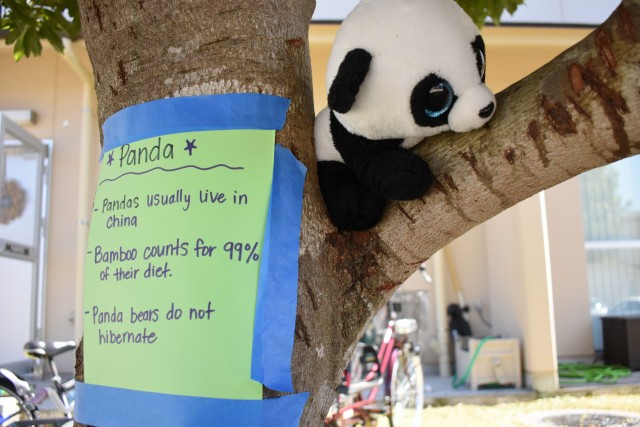 * Panda *
- Pandas usually live in
China
- Bamboo counts for 99%
of their diet.
- Panda bears do not
hibernate